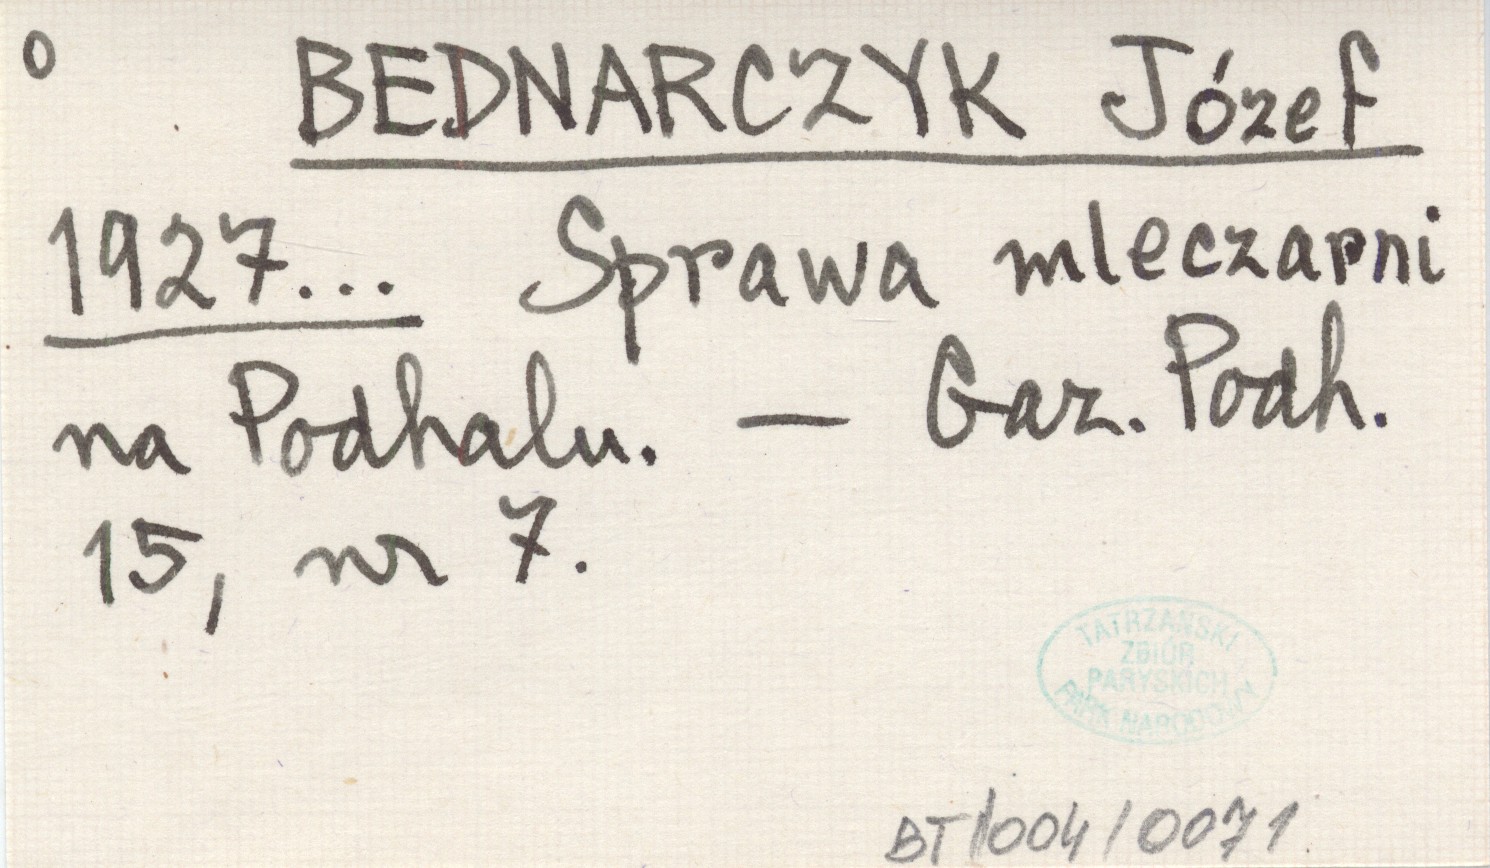 o BEDNARCZYK Józef
1927... Sprawa mleczarni
na Podhalu. — Gaz. Podh.
15, nr 7.
TATRZAŃSKI
ZBIÓR
PARYSKICH
PARK NARODOWY
BT/004/0071